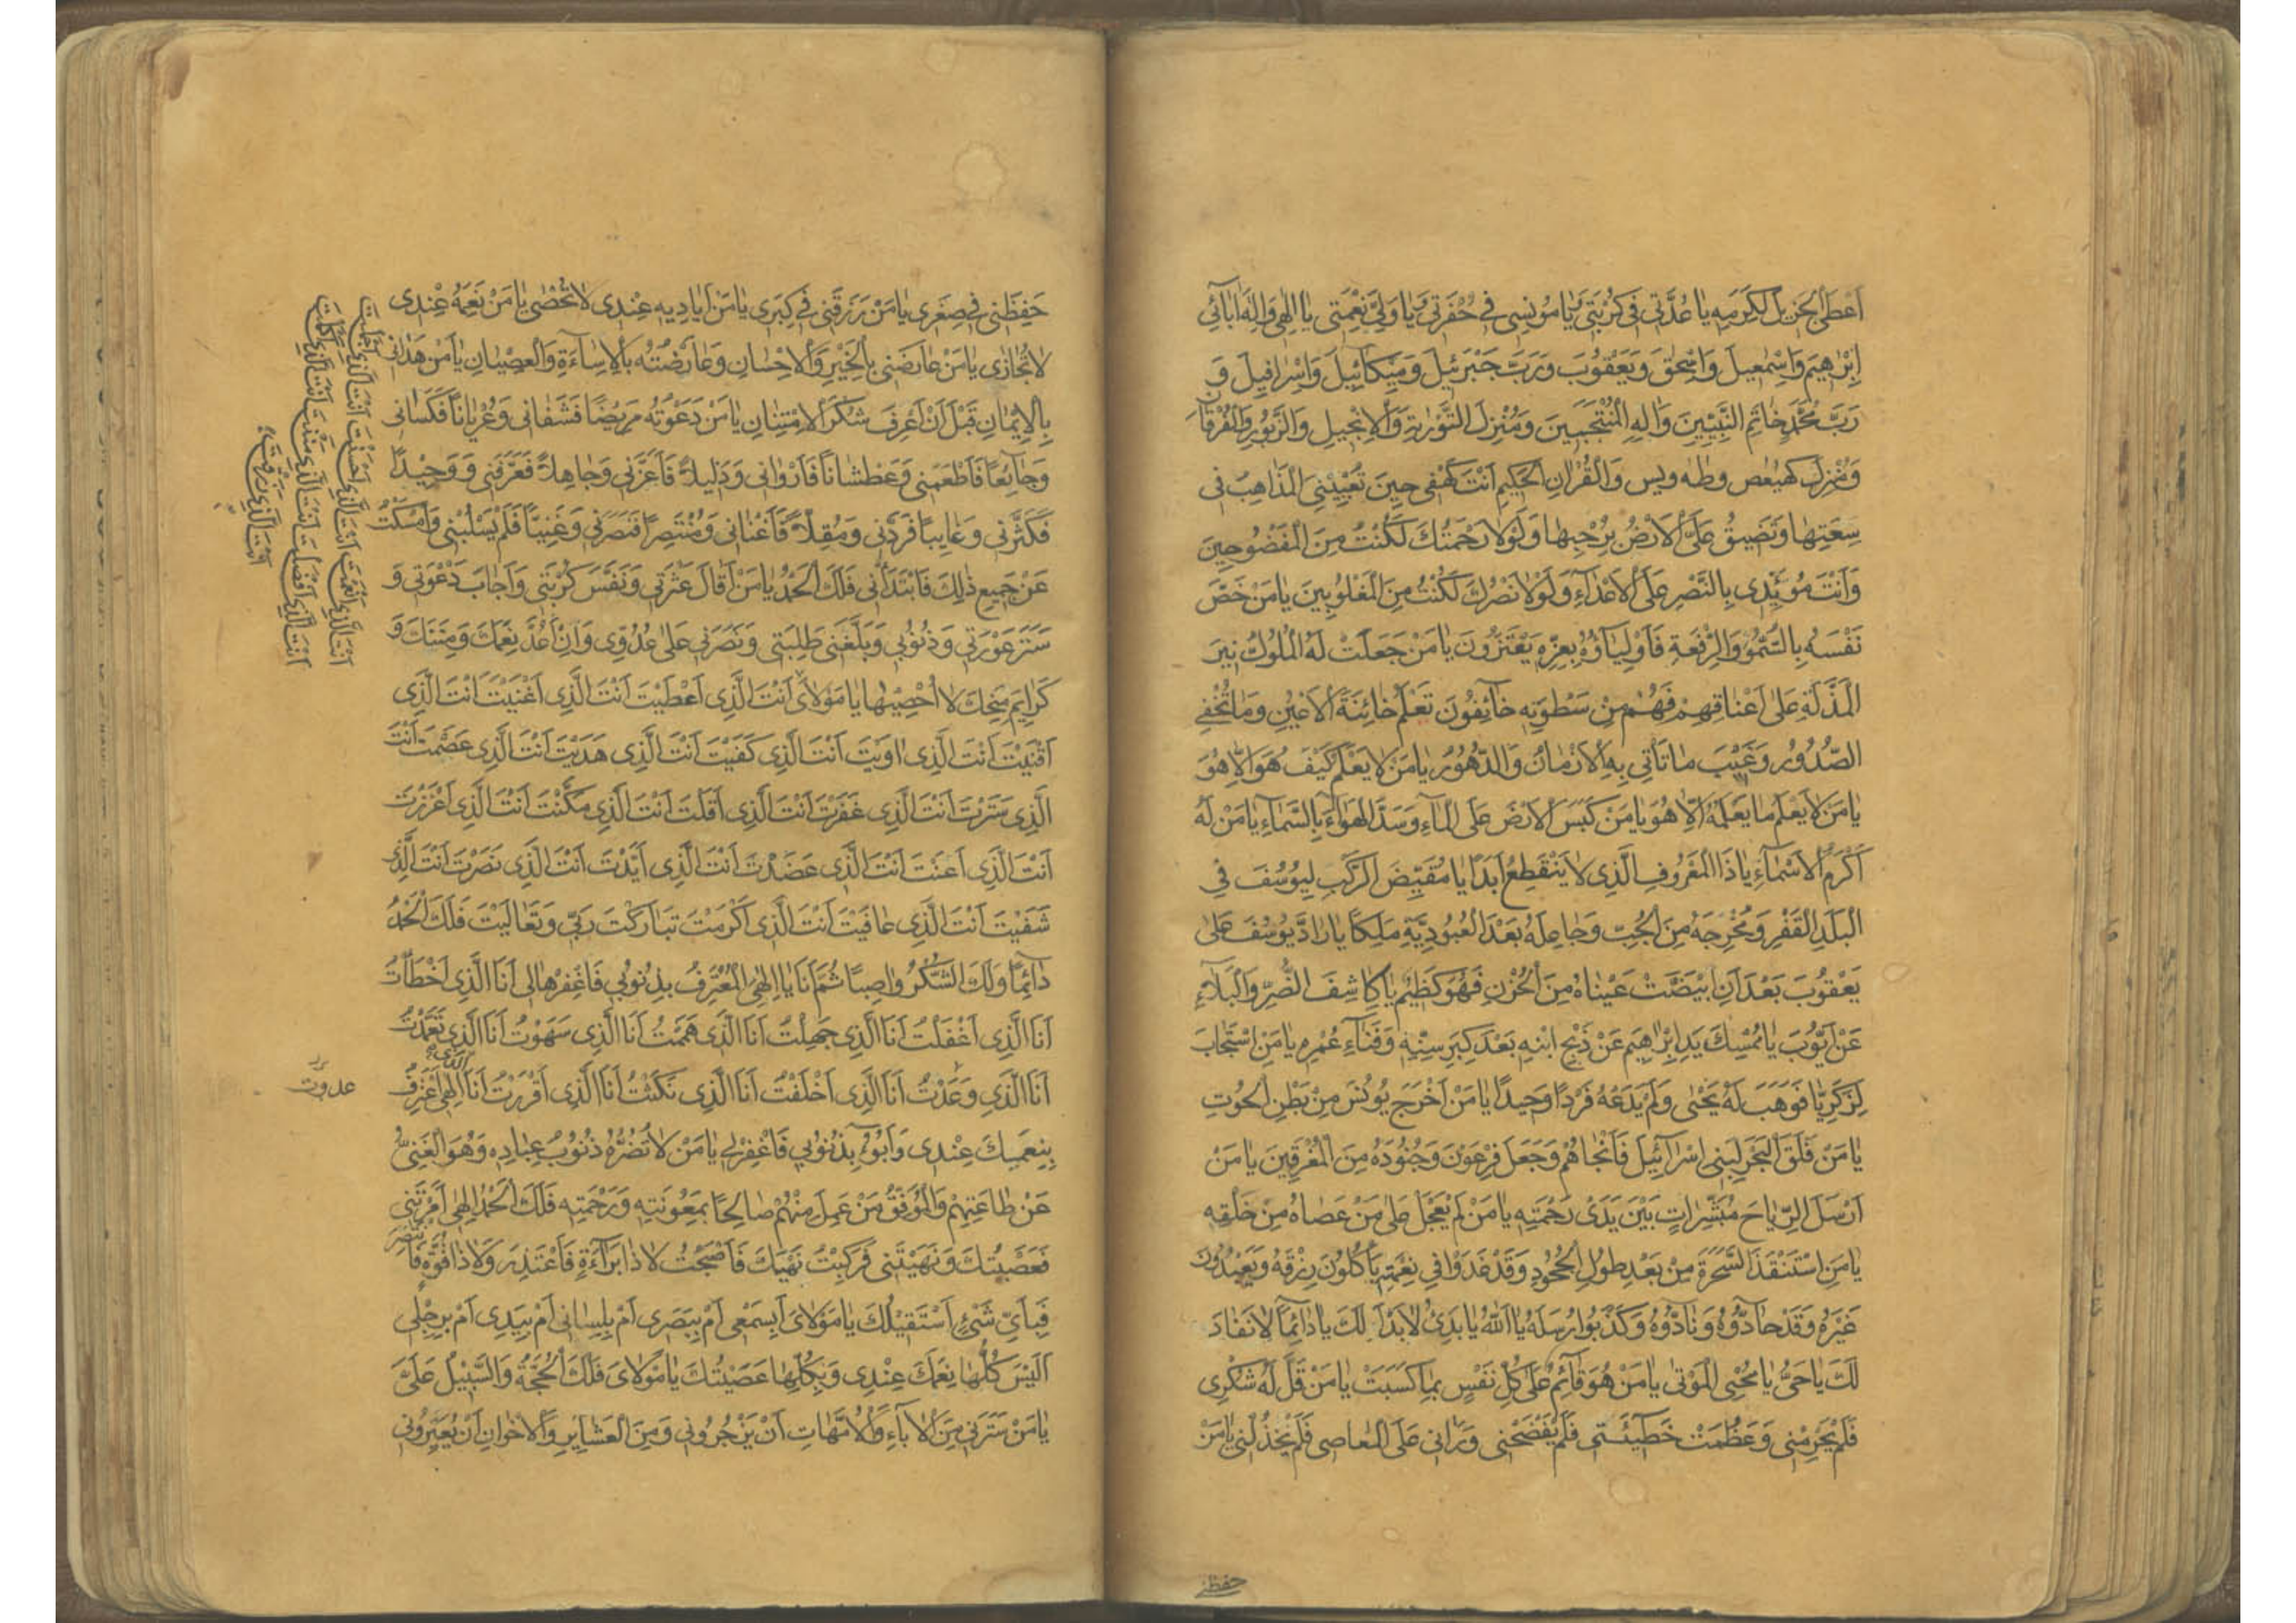 اَعْطَى الْجَزيلَ لِكَرَمِهِ يا عُدَّتى فى كُرْبَتى وَ يا مُونِسى فى حُفْرَتى وَ يا وَلِىَّ نِعْمَتى يا اِلٰهى وَاِلٰهَ اٰبائى
اِبْرٰهيمَ وَاِسْمٰعيلَ وَاِسْحٰقَ وَيَعْقُوبَ وَرَبَّ جَبْرَئيلَ وَميكآئيلَ وَاِسْرافيلَ وَ
رَبَّ مُحَمَّدٍ خاتَمِ النَّبِيّينَ وَاٰلِهِ الْمُنْتَجَبينَ وَمُنْزِلَ التَّوْريٰةِ وَالْاِنْجيلِ وَالزَّبُورِ وَالْفُرْقانِ
وَمُنْزِلَ كهيعص وطه ويس وَالْقُرْاٰنِ الْحَكيمِ اَنْتَ كَهْفى حينَ تُعْيينِى الْمَذاهِبُ فى
سِعَتِها وَتَضيقُ عَلَىَّ الْاَرْضُ بِرُحْبِها وَلَوْلا رَحْمَتُكَ لَكُنْتُ مِنَ الْمَفْضُوحينَ
وَاَنْتَ مُؤَيِّدى بِالنَّصْرِ عَلَى الْاَعْدآءِ وَلَوْلا نَصْرُكَ لَكُنْتُ مِنَ الْمَغْلُوبينَ يا مَنْ خَصَّ
نَفْسَهُ بِالسُّمُوِّ وَالرِّفْعَةِ فَاَوْلِيآؤُهُ بِعِزِّهِ يَعْتَزُّونَ يا مَنْ جَعَلَتْ لَهُ الْمُلُوكُ نيرَ
الْمَذَلَّةِ عَلى اَعْناقِهِمْ فَهُمْ مِنْ سَطْوَتِهِ خآئِفُونَ تَعْلَمُ خائِنَةَ الْاَعْيُنِ وَما تُخْفِى
الصُّدُورُ وَغَيْبَ ما تَأتى بِهِ الْاَزْمانُ وَالدُّهُورُ يا مَنْ لا يَعْلَمُ كَيْفَ هُوَ اِلّا هُوَ
يا مَنْ لا يَعْلَمُ ما يَعْلَمُهُ اِلّا هُوَ يا مَنْ كَبَسَ الْاَرْضَ عَلَى الْمآءِ وَسَدَّ الْهَوآءَ بِالسَّمآءِ يا مَنْ لَهُ
اَكْرَمُ الْاَسْمآءِ يا ذَا الْمَعْرُوفِ الَّذى لا يَنْقَطِعُ اَبَداً يا مُقَيِّضَ الرَّكْبِ لِيُوسُفَ فى
الْبَلَدِ الْقَفْرِ وَمُخْرِجَهُ مِنَ الْجُبِّ وَجاعِلَهُ بَعْدَ الْعُبُودِيَّةِ مَلِكاً يا رادَّ يُوسُفَ عَلى
يَعْقُوبَ بَعْدَ اَنِ ابْيَضَّتْ عَيْناهُ مِنَ الْحُزْنِ فَهُوَ كَظيمٌ يا كاشِفَ الضُّرِّ وَالْبَلآءِ
عَنْ اَيُّوبَ يا مُمْسِكَ يَدِ اِبْرٰهيمَ عَنْ ذَبْحِ ابْنِهِ بَعْدَ كِبَرِ سِنِّهِ وَفَنآءِ عُمْرِهِ يا مَنِ اسْتَجابَ
لِزَكَرِيّا فَوَهَبَ لَهُ يَحْيٰى وَلَمْ يَدَعْهُ فَرْداً وَحيداً يا مَنْ اَخْرَجَ يُونُسَ مِنْ بَطْنِ الْحُوتِ
يا مَنْ فَلَقَ الْبَحْرَ لِبَنى اِسْرآئيلَ فَاَنْجاهُمْ وَجَعَلَ فِرْعَوْنَ وَجُنُودَهُ مِنَ الْمُغْرَقينَ يا مَنْ
اَرْسَلَ الرِّياحَ مُبَشِّراتٍ بَيْنَ يَدَىْ رَحْمَتِهِ يا مَنْ لَمْ يَعْجَلْ عَلى مَنْ عَصاهُ مِنْ خَلْقِهِ
يا مَنِ اسْتَنْقَذَ السَّحَرَةَ مِنْ بَعْدِ طُولِ الْجُحُودِ وَقَدْ غَدَوْا فى نِعْمَتِهِ يَأكُلُونَ رِزْقَهُ وَيَعْبُدُونَ
غَيْرَهُ وَقَدْ حآدُّوهُ وَنآدُّوهُ وَكَذَّبُوا رُسُلَهُ يا اَللهُ يا بَدىءُ لا بَدْاَ لَكَ يا دائِماً لا نَفادَ
لَكَ يا حَىُّ يا مُحْيِىَ الْمَوْتٰى يا مَنْ هُوَ قآئِمٌ عَلى كُلِّ نَفْسٍ بِما كَسَبَتْ يا مَنْ قَلَّ لَهُ شُكْرى
فَلَمْ يَحْرِمْنى وَعَظُمَتْ خَطيئَتى فَلَمْ يَفْضَحْنى وَرَاٰنى عَلَى الْمَعاصى فَلَمْ يَخْذُلْنى يا مَنْ
حفظنى
حَفِظَنى فى صِغَرى يا مَنْ رَزَقَنى فى كِبَرى يا مَنْ اَياديهِ عِنْدى لا تُحْصٰى يا مَنْ نِعَمُهُ عِنْدى
لا تُجازى يا مَنْ عارَضَنى بِالْخَيْرِ وَالْاِحْسانِ وَعارَضْتُهُ بِالْاِسآءَةِ وَالْعِصْيانِ يا مَنْ هَدانى
بِالْاِيْمانِ قَبْلَ اَنْ اَعْرِفَ شُكْرَ الْاِمْتِنانِ يا مَنْ دَعَوْتُهُ مَريضاً فَشَفانى وَعُرْياناً فَكَسانى
وَجآئِعاً فَاَطْعَمَنى وَعَطْشاناً فَاَرْوانى وَذَليلاً فَاَعَزَّنى وَجاهِلاً فَعَرَّفَنى وَوَحيداً
فَكَثَّرَنى وَغايِباً فَرَدَّنى وَمُقِلّاً فَاَغْنانى وَمُنْتَصِراً فَنَصَرَنى وَغَنِيّاً فَلَمْ يَسْلُبْنى وَاَمْسَكْتُ
عَنْ جَميعِ ذٰلِكَ فَابْتَدَاَنى فَلَكَ الْحَمْدُ يا مَنْ اَقالَ عَثْرَتى وَنَفَّسَ كُرْبَتى وَاَجابَ دَعْوَتى وَ
سَتَرَ عَوْرَتى وَذُنُوبى وَبَلَّغَنى طَلِبَتى وَنَصَرَنى عَلى عَدُوّى وَاِنْ اَعُدَّ نِعَمَكَ وَمِنَنَكَ وَ
كَرايِمَ مِنَحِكَ لا اُحْصيها يا مَوْلاىَ اَنْتَ الَّذى اَعْطَيْتَ اَنْتَ الَّذى اَغْنَيْتَ اَنْتَ الَّذى
اَقْنَيْتَ اَنْتَ الَّذى اٰوَيْتَ اَنْتَ الَّذى كَفَيْتَ اَنْتَ الَّذى هَدَيْتَ اَنْتَ الَّذى عَصَمْتَ اَنْتَ
الَّذى سَتَرْتَ اَنْتَ الَّذى غَفَرْتَ اَنْتَ الَّذى اَقَلْتَ اَنْتَ الَّذى مَكَّنْتَ اَنْتَ الَّذى اَعْزَزْتَ
اَنْتَ الَّذى اَعَنْتَ اَنْتَ الَّذى عَضَدْتَ اَنْتَ الَّذى اَيَّدْتَ اَنْتَ الَّذى نَصَرْتَ اَنْتَ الَّذى
شَفَيْتَ اَنْتَ الَّذى عافَيْتَ اَنْتَ الَّذى اَكْرَمْتَ تَبارَكْتَ رَبّى وَتَعالَيْتَ فَلَكَ الْحَمْدُ
دآئِماً وَلَكَ الشُّكْرُ واصِباً ثُمَّ اَنَا يا اِلٰهى الْمُعْتَرِفُ بِذُنُوبى فَاغْفِرْها لى اَنَا الَّذى اَخْطَأتُ
اَنَا الَّذى اَغْفَلْتُ اَنَا الَّذى جَهِلْتُ اَنَا الَّذى هَمَمْتُ اَنَا الَّذى سَهَوْتُ اَنَا الَّذى تَعَمَّدْتُ
اَنَا الَّذى وَعَدْتُ اَنَا الَّذى اَخْلَفْتُ اَنَا الَّذى نَكَثْتُ اَنَا الَّذى اَقْرَرْتُ اَنَا الَّذى اِلٰهى اَعْتَرِفُ
بِنِعَمِكَ عِنْدى وَاَبُوءُ بِذُنُوبى فَاغْفِرْ لى يا مَنْ لا تَضُرُّهُ ذُنُوبُ عِبادِهِ وَهُوَ الْغَنِىُّ
عَنْ طاعَتِهِمْ وَالْمُوَفِّقُ مَنْ عَمِلَ مِنْهُمْ صالِحاً بِمَعُونَتِهِ وَرَحْمَتِهِ فَلَكَ الْحَمْدُ اِلٰهى اَمَرْتَنى
فَعَصَيْتُكَ وَنَهَيْتَنى فَرَكِبْتُ نَهْيَكَ فَاَصْبَحْتُ لا ذا بَرآءَةٍ فَاَعْتَذِرَ وَلا ذا قُوَّةٍ فَاَنْتَصِرَ
فَبِاَىِّ شَىْءٍ اَسْتَقيلُكَ يا مَوْلاىَ اَبِسَمْعى اَمْ بِبَصَرى اَمْ بِلِسانى اَمْ بِيَدى اَمْ بِرِجْلى
اَلَيْسَ كُلُّها نِعَمَكَ عِنْدى وَبِكُلِّها عَصَيْتُكَ يا مَوْلاىَ فَلَكَ الْحُجَّةُ وَالسَّبيلُ عَلَىَّ
يا مَنْ سَتَرَنى مِنَ الْاٰبآءِ وَالْاُمَّهاتِ اَنْ يَزْجُرُونى وَمِنَ الْعَشايِرِ وَالْاِخْوانِ اَنْ يُعَيِّرُونى
اَنْتَ الَّذى اَنْعَمْتَ اَنْتَ الَّذى اَحْسَنْتَ اَنْتَ الَّذى اَجْمَلْتَ
اَنْتَ الَّذى اَفْضَلْتَ اَنْتَ الَّذى مَنَنْتَ اَنْتَ الَّذى اَكْمَلْتَ
اَنْتَ الَّذى رَزَقْتَ
عدوت